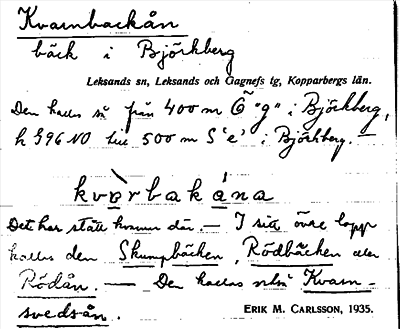 Kvarnbackån
bäck i Björkberg
Leksands sn, Leksands och Gagnefs tg, Kopparbergs län.
Den kallas så från 400 m Ö "g" i Björkberg,
h 396 NO till 500 m S "e" i Björkberg. —
kvɒ̀rbakána
Det har stått kvarn där. — I sitt övre lopp
kallas den Skumpbäcken, Rödbäcken eller
Rödån. — Den kallas också Kvarn-
svedsån.
ERIK M. CARLSSON, 1935.